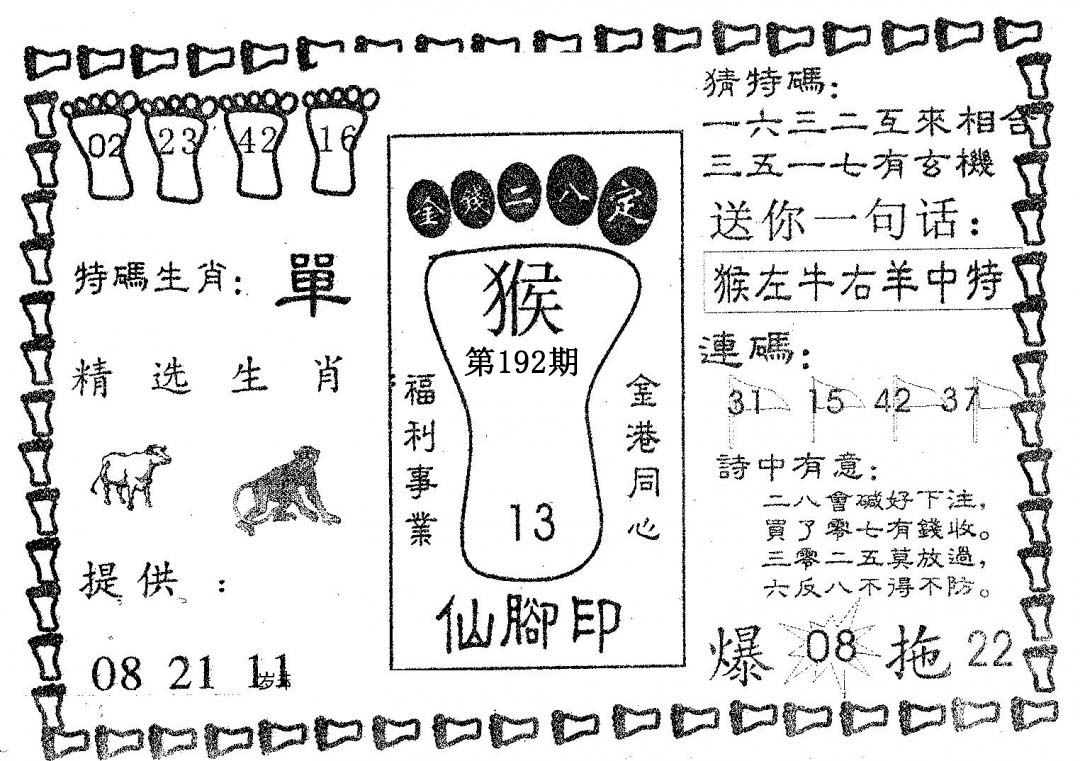 02 23 42 16
特碼生肖：單
精选生肖
提供：
08 21 11
金錢二八定
猴
第192期
福利事業
金港同心
13
仙腳印
猜特碼：
一六三二互來相合
三五一七有玄機
送你一句话：
猴左牛右羊中特
連碼：
31 15 42 37
詩中有意：
二八會碱好下注，
買了零七有錢收。
三零二五莫放過，
六反八不得不防。
爆 08 拖 22